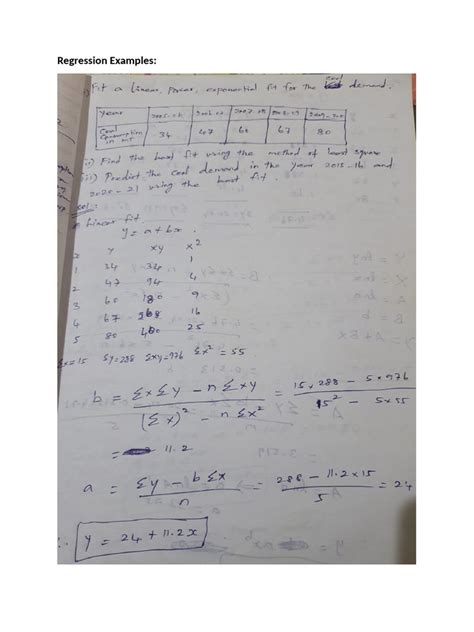 Regression Examples:
i) Fit a Linear, Power, exponential fit for the coal demand.
Year 2005-06 2006-07 2007-08 2008-09 2009-10
Coal Consumption in MT 34 47 60 67 80
ii) Find the best fit using the method of least square
iii) Predict the coal demand in the year 2015-16 and
2020-21 using the best fit.
Linear fit
y = a + bx.
x y xy x²
1 34 34 1
2 47 94 4
3 60 180 9
4 67 268 16
5 80 400 25
Σx=15 Σy=288 Σxy=976 Σx² = 55.
b = Σx Σy - n Σxy / (Σx)² - n Σx² = 15 x 288 - 5 x 976 / 15² - 5x55
= 11.2
a = Σy - b Σx / n = 288 - 11.2 x 15 / 5 = 24
y = 24 + 11.2 x